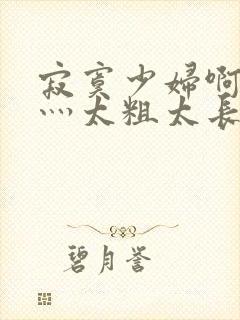 寂寞少婦啊
灬太粗太長
碧月誉